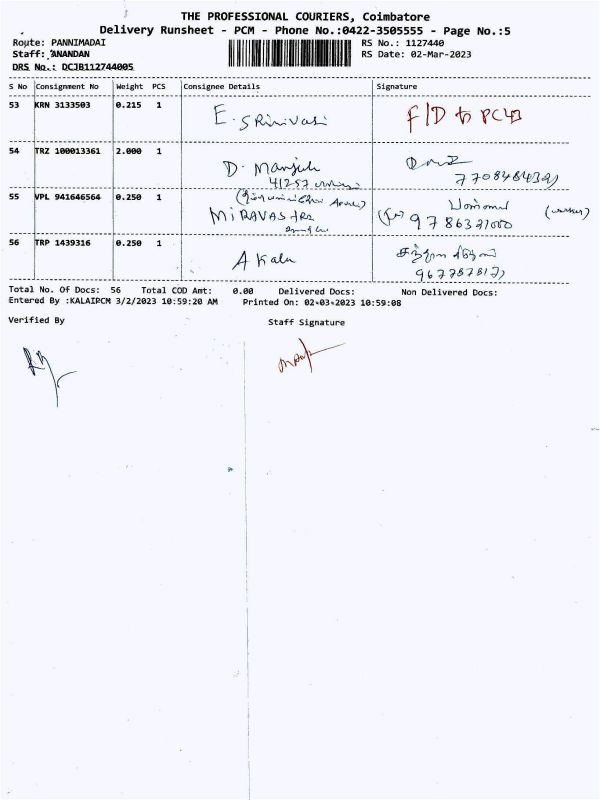 THE PROFESSIONAL COURIERS, Coimbatore
Delivery Runsheet - PCM - Phone No.:0422-3505555 - Page No.:5
Route: PANNIMADAI
RS No.: 1127440
Staff: ANANDAN
RS Date: 02-Mar-2023
DRS No.: DCJB112744005
S No Consignment No Weight PCS Consignee Details Signature
53 KRN 3133503 0.215 1 E. SRinivasi F/D to PCLB
54 TRZ 100013361 2.000 1 D. Manjula
41257
55 VPL 941646564 0.250 1 MIRAVASTRA 9786321000 (worker)
56 TRP 1439316 0.250 1 A Kala
Total No. Of Docs: 56 Total COD Amt: 0.00 Delivered Docs: Non Delivered Docs:
Entered By :KALAIPCM 3/2/2023 10:59:20 AM Printed On: 02-03-2023 10:59:08
Verified By Staff Signature